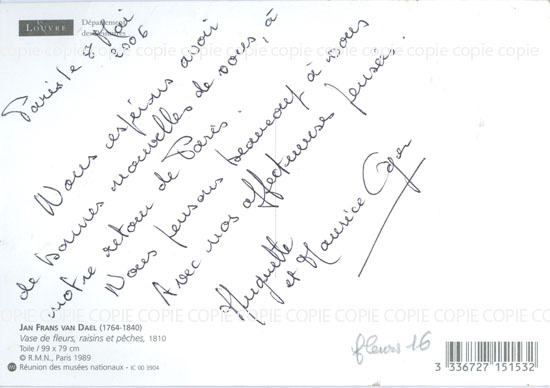 LOUVRE
Département
des Peintures
Paris le 2 Mai
2006
Nous espérions avoir
de bonnes nouvelles de vous, à
notre retour de Paris.
Nous pensons beaucoup à vous
Avec nos affectueuses pensées.
Huguette
et Maurice Oger
JAN FRANS VAN DAEL (1764-1840)
Vase de fleurs, raisins et pêches, 1810
Toile / 99 x 79 cm
© R.M.N., Paris 1989
Réunion des musées nationaux - IC 00 3904
fleurs 16
3 336727 151532
COPIE COPIE COPIE COPIE COPIE COPIE COPIE COPIE